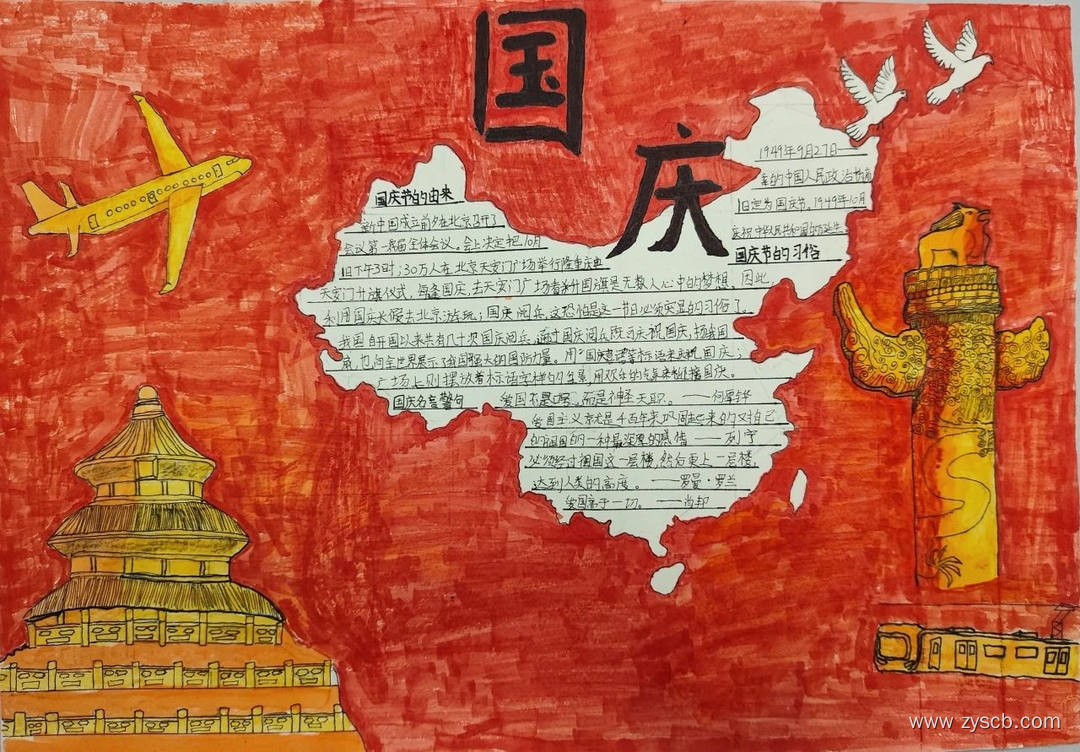 国
庆
1949年9月27日——
国庆节的由来
新中国成立前夕在北京召开了
的中国人民政治协商
会议第一届全体会议。会上决定把10月
1日定为国庆节。1949年10月
1日下午3时;30万人在北京天安门广场举行隆重庆典
庆祝中华人民共和国的诞生
国庆节的习俗
天安门升旗仪式,每逢国庆,去天安门广场看升国旗是无数人心中的梦想。因此,
利用国庆长假去北京游玩;国庆阅兵,这恐怕是这一节日必须突显的习俗了。
我国自开国以来共有几十次国庆阅兵,通过国庆阅兵既可庆祝国庆,扬我国
威,也向全世界展示了我国强大的国防力量。用“国庆标语等标语来庆祝国庆;
广场上则摆放着标语字样的
国庆名言警句
爱国不是口号,而是神圣天职。——何军铧
爱国主义就是千百年来巩固起来的对自己
的祖国的一种最深厚的感情——列宁
必须经过祖国这一层楼,然后更上一层楼,
达到人类的高度。——罗曼·罗兰
爱国高于一切。——肖邦
www.zyscb.com